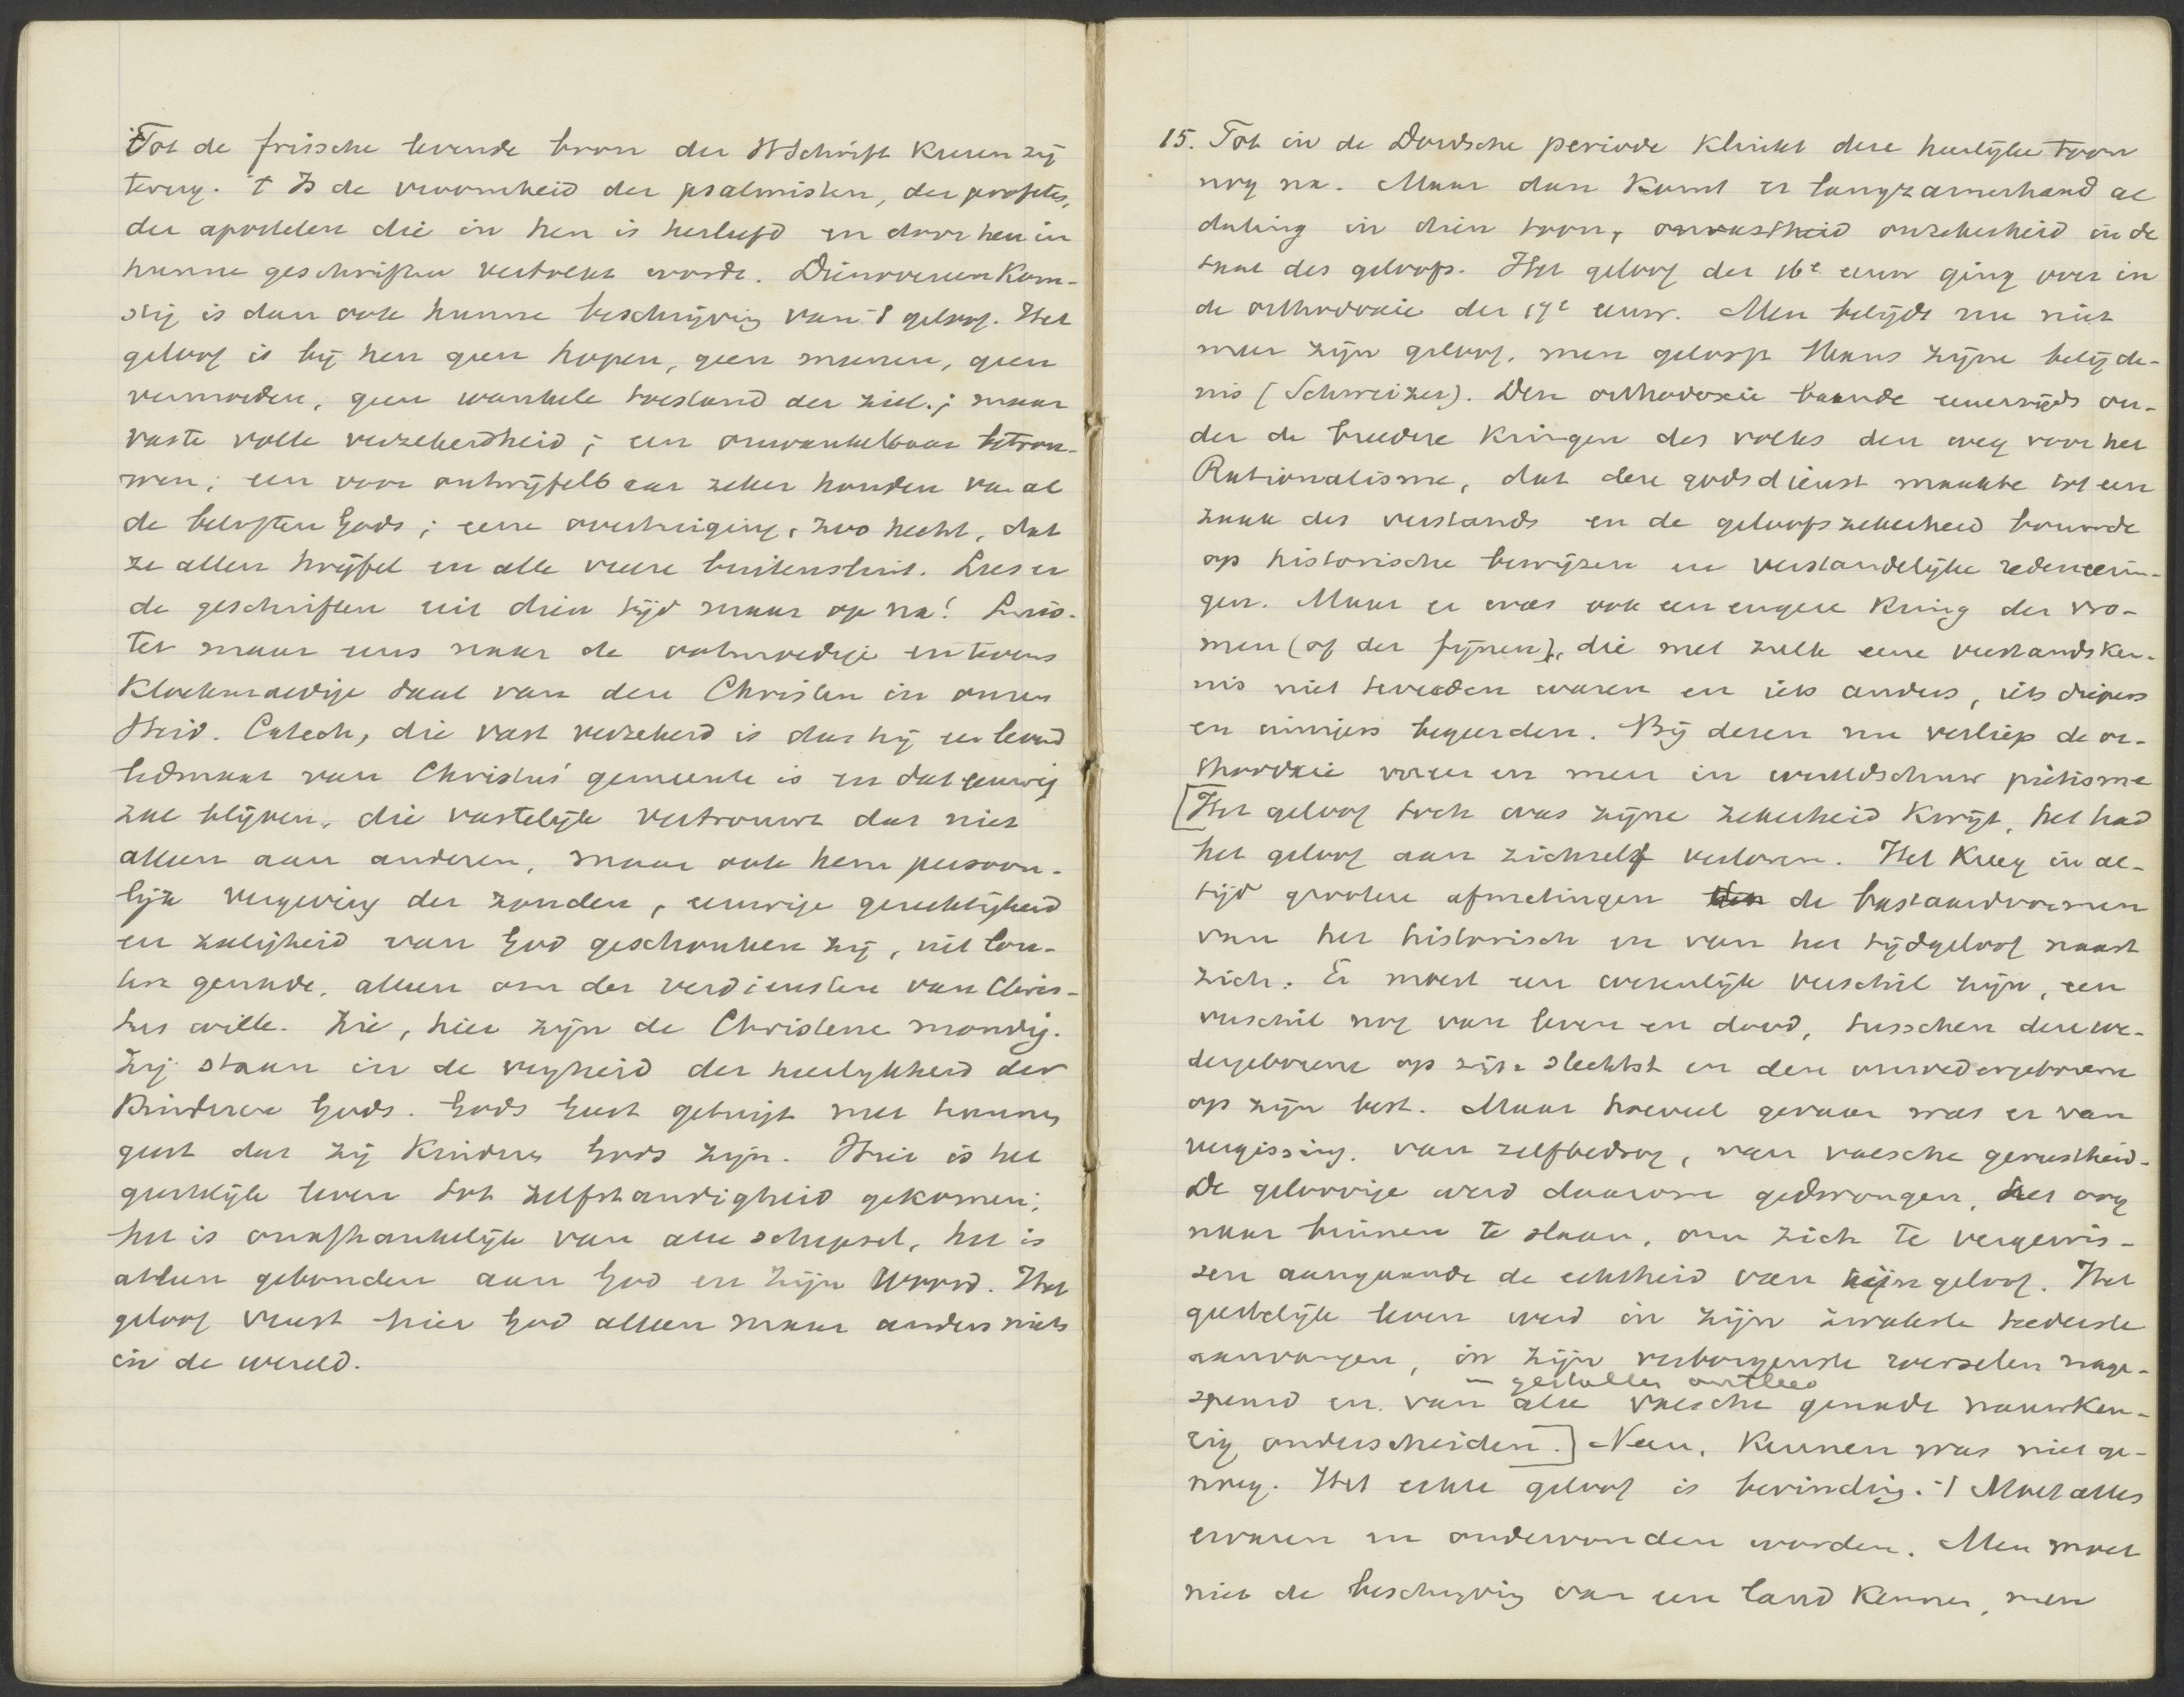 Tot de frissche levende bron der H Schrift keeren zij
terug. 't Is de vroomheid der psalmisten, der profeten,
der apostelen die in hen is herleefd en door hen in
hunne geschriften vertolkt wordt. Dienovereenkom-
stig is dan ook hunne beschrijving van 't geloof. Het
geloof is bij hen geen hopen, geen meenen, geen
vermoeden, geen wankele toestand der ziel; maar
vaste volle verzekerdheid; een onwankelbaar betrou-
wen; een voor ontwijfelbaar zeker houden van al
de beloften Gods; eene overtuiging, zoo hecht, dat
ze allen twijfel en alle vreeze buitensluit. Lees er
de geschriften uit dien tijd maar op na! Luis-
ter maar eens naar de ootmoedige en tevens
kloekmoedige taal van den Christen in onzen
Heid. Catech, die vast verzekerd is dat hij een levend
lidmaat van Christus' gemeente is en dat eeuwig
zal blijven, die vastelijk vertrouwt dat niet
alleen aan anderen, maar ook hem persoon-
lijk vergeving der zonden, eeuwige gerechtigheid
en zaligheid van God geschonken zij, uit lou-
tere genade, alleen om der verdienstene van Chris-
tus wille. Zie, hier zijn de Christenen mondig.
Zij staan in de vrijheid der heerlijkheid der
kinderen Gods. Gods Geest getuigt met hunnen
geest dat zij kinderen Gods zijn. Hier is het
geestelijk leven tot zelfstandigheid gekomen;
het is onafhankelijk van alle schepsel, het is
alleen gebonden aan God en zijn Woord. Het
geloof vreest hier God alleen maar anders niets
in de wereld.
15. Tot in de Dordsche periode klinkt deze heerlijke toon
nog na. Maar dan komt er langzamerhand al
daling in dien toon, onvastheid onzekerheid in de
taal des geloofs. Het geloof der 16e eeuw ging over in
de orthodoxie der 17e eeuw. Men belijdt nu niet
meer zijn geloof, men gelooft thans zijne belijde-
nis (Schweizer). Deze orthodoxie baande eenerzijds on-
der de breedere kringen des volks den weg voor het
Rationalisme, dat deze godsdienst maakte tot een
zaak des verstands en de geloofszekerheid bouwde
op historische bewijzen en verstandelijke redeneerin-
gen. Maar er was ook een engere kring der vro-
men (of der fijnen), die met zulk eene verstandsken-
nis niet tevreden waren en iets anders, iets diepers
en innigers begeerden. Bij dezen nu verliep de or-
thodoxie meer en meer in wereldschuw piëtisme
[Het geloof toch was zijne zekerheid kwijt, het had
het geloof aan zichzelf verloren. Het kreeg in al-
tijd grootere afmetingen de bastaardvormen
van het historisch en van het tijdgeloof naast
zich. Er moest een wezenlijk verschil zijn, een
verschil nog van leven en dood, tusschen den we-
dergeborene op zijn slechtst en den onwedergeborene
op zijn best. Maar hoeveel gevaar was er van
vergissing, van zelfbedrog, van valsche gerustheid.
De geloovige werd daarom gedwongen, het oog
naar binnen te slaan, om zich te vergewis-
sen aangaande de echtheid van zijn geloof. Het
geestelijk leven werd in zijn zwakste teederste
aanvangen, in zijn verborgenste wortelen nage-
gestalten ontleed
speurd en van alle valsche genade nauwkeu-
rig onderscheiden.] Neen, kennen was niet ge-
noeg. Het echte geloof is bevinding. 't Moet alles
ervaren en ondervonden worden. Men moet
niet de beschrijving van een land kennen, men